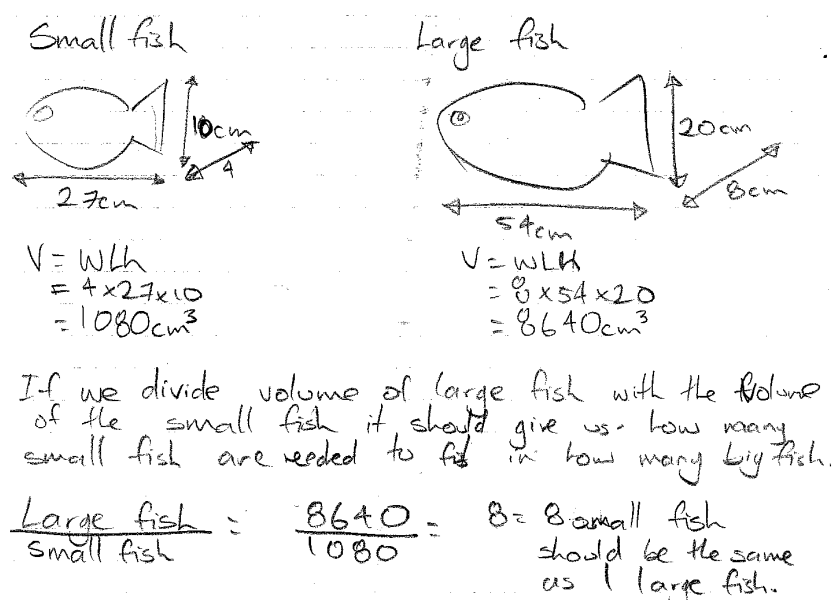 Small fish
Large fish
10cm
4
27cm
20cm
8cm
54cm
V = WLh
= 4×27×10
= 1080cm³
V = WLH
= 8×54×20
= 8640cm³
If we divide volume of large fish with the volume
of the small fish it should give us how many
small fish are needed to fit in how many big fish.
Large fish / small fish = 8640 / 1080 = 8 = 8 small fish
should be the same
as 1 large fish.